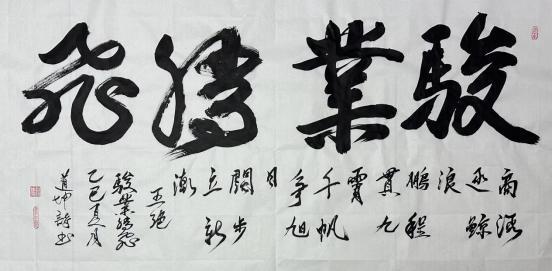 駿業騰飛
商海
逐鯨
浪
鵬程
貫九
霄
千帆
爭旭
日
闊步
立新
潮
五绝
駿業騰飛
乙巳夏月
道坤詩书